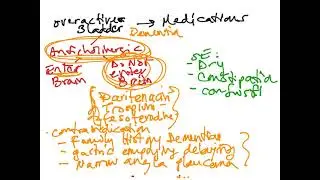 overactive → Medications
Bladder
Dementia
Anticholinergic
Enter Brain
Do Not enter Brain
SE:
- Dry
- constipatio
- confusio
Darifenacin
Trospium
Fesoterodine
- contraindication
- Family History Dementia
- gastric emptying delaying
- narrow angle glaucoma